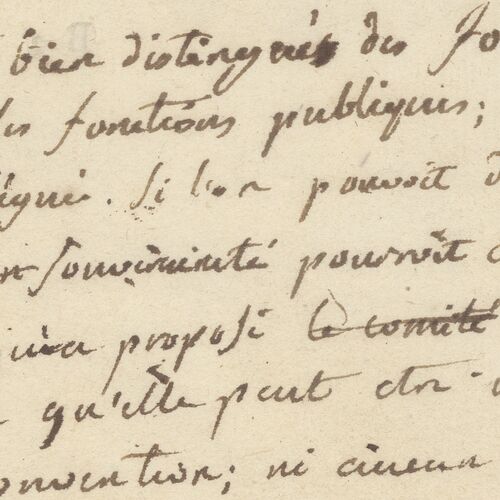 bien distingués des fo
des fonctions publiques;
légué. Si l'on pouvoit d
souveraineté pourroit
propose le comité
qu'elle peut etre
onvention; ni aucun